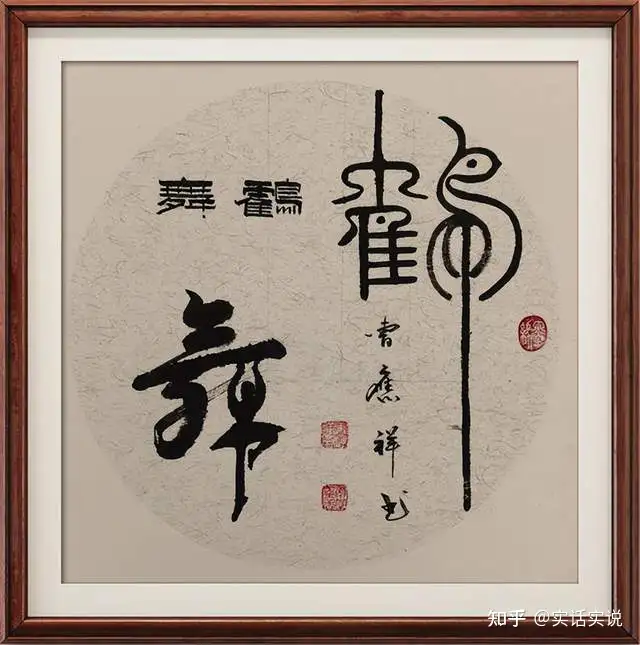 鶴
曹應祥书
鶴舞
舞
知乎 @实话实说